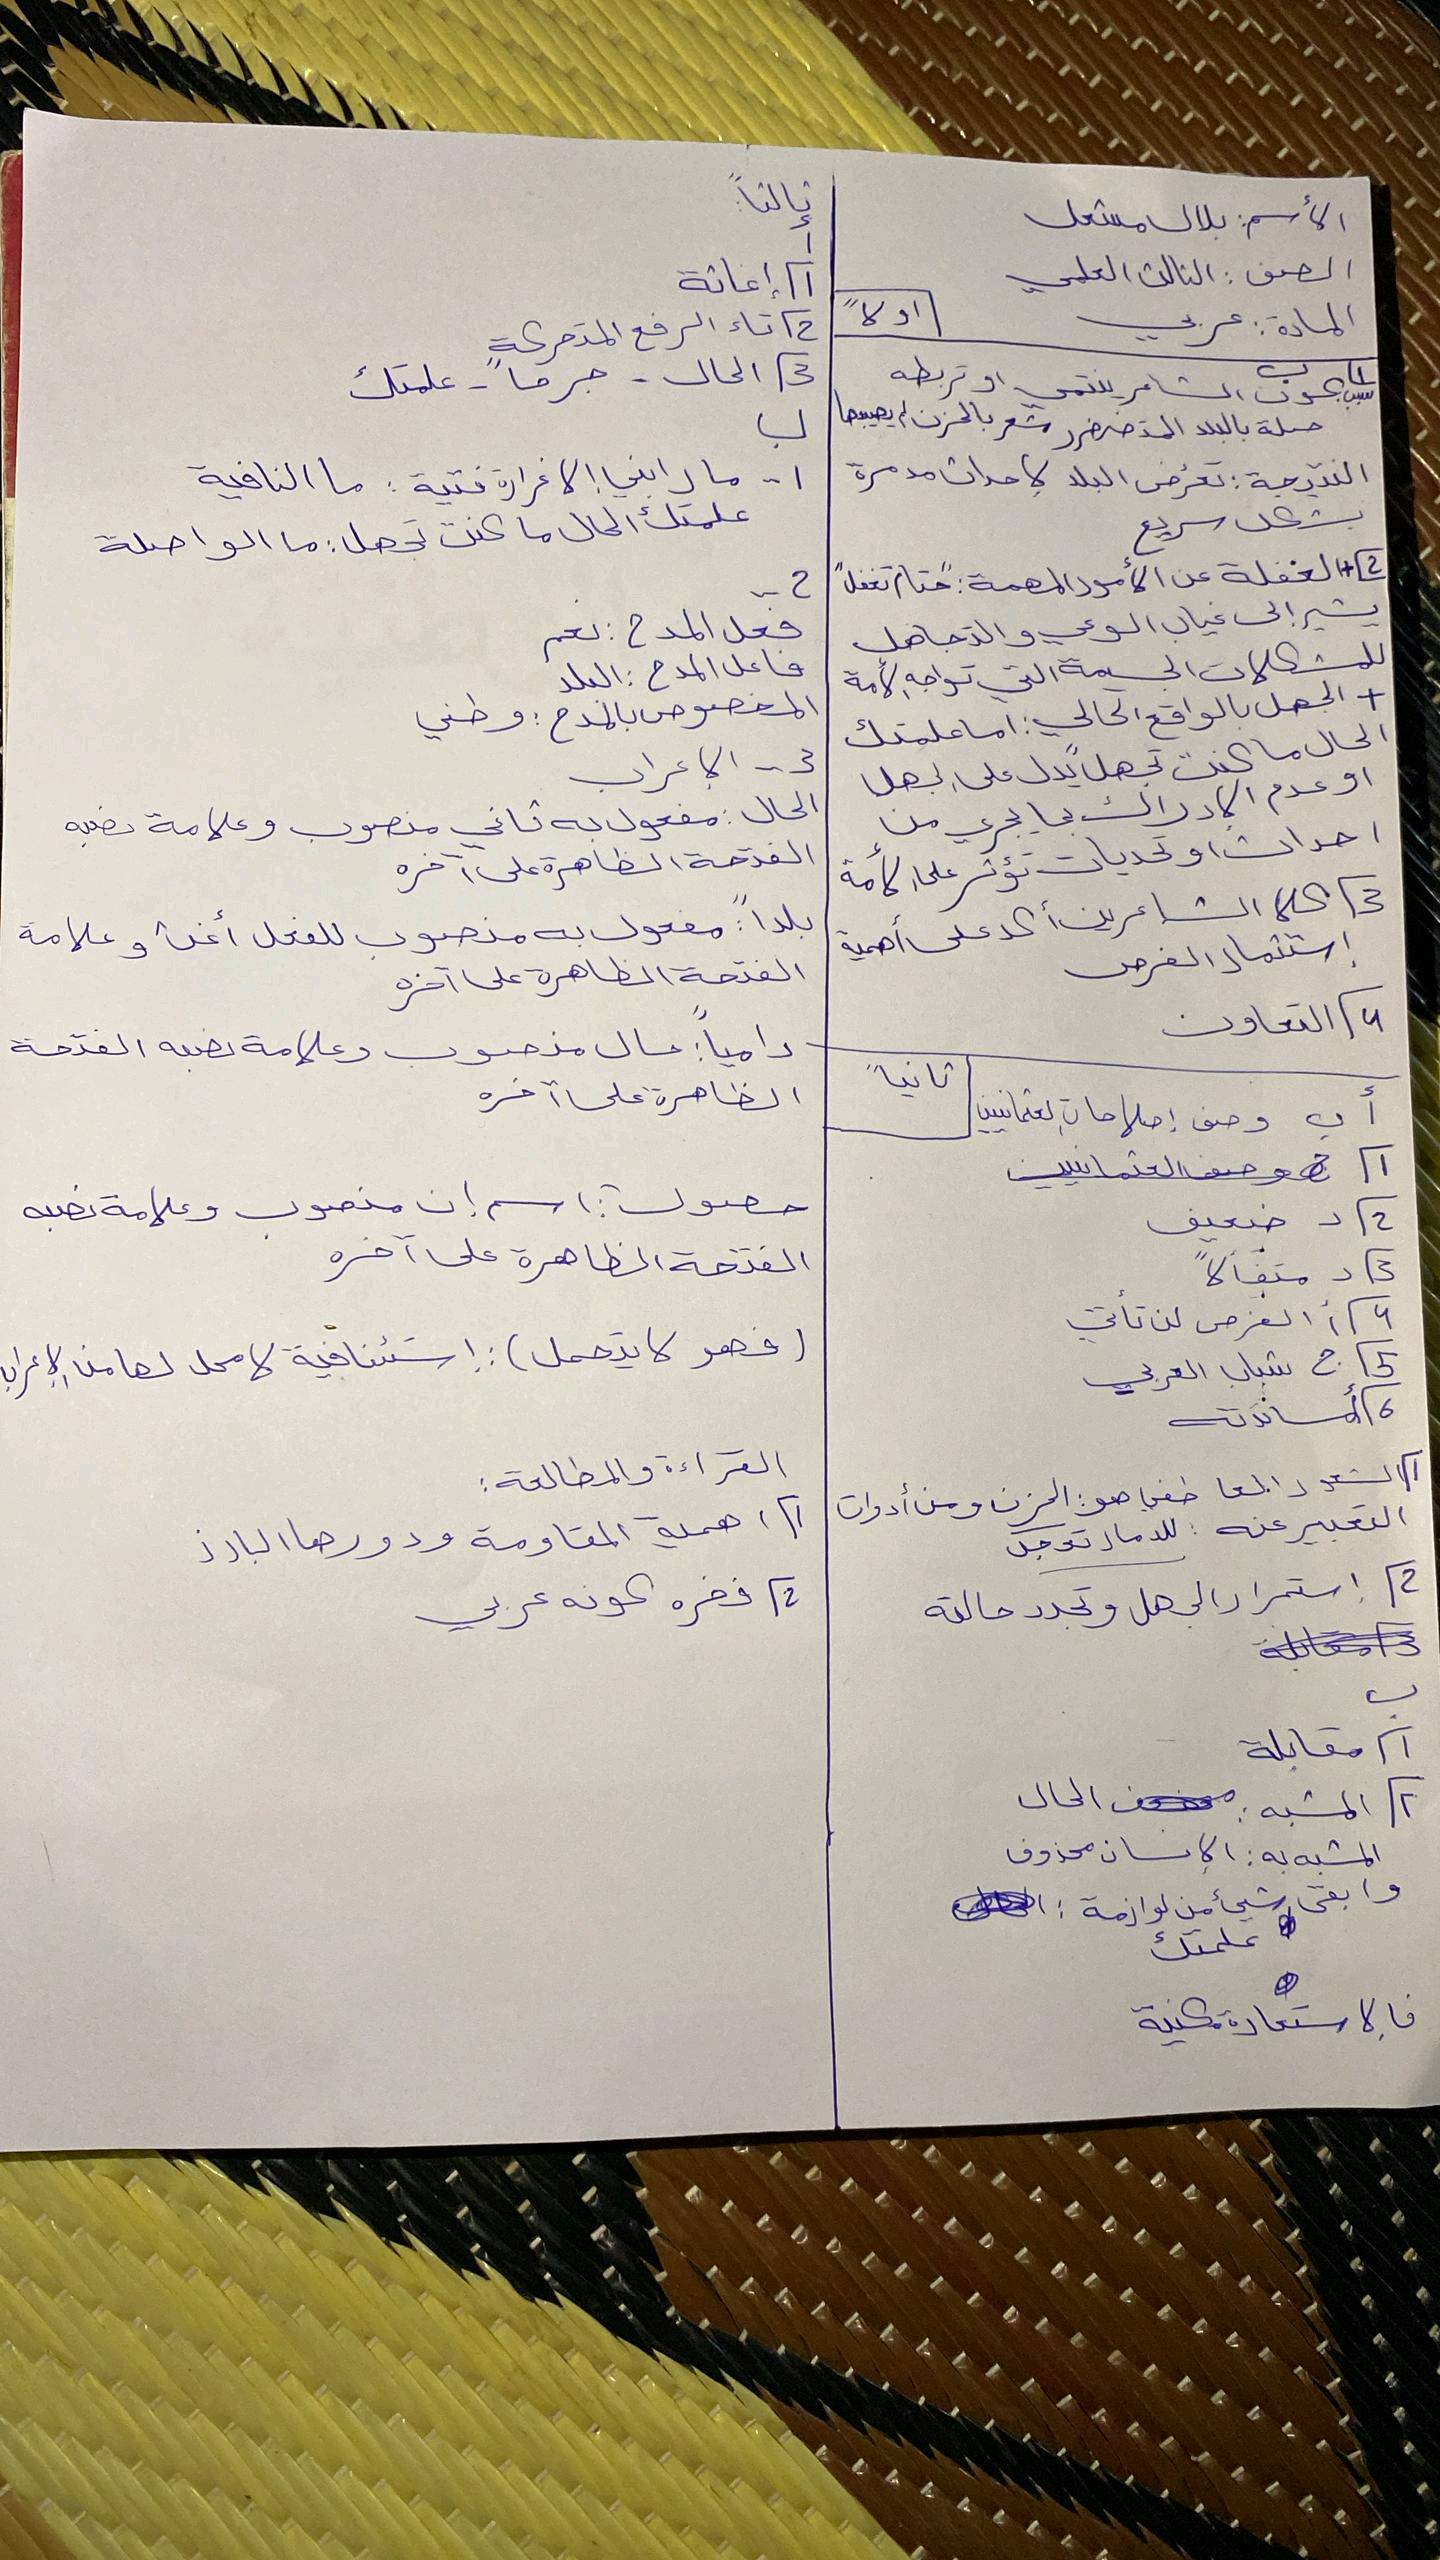 الأسم: بلال مشعل
الصف: الثالث العلمي
المادة: عربي
اولاً
1) السبب كون الشاعر ينتمي او تربطه
صلة بالبلد المتضرر شعر بالحزن لما يصيبها
النتيجة: تعرض البلد لأحداث مدمرة
بشكل سريع
2) + الغفلة عن الأمور المهمة: "حتام تغفل"
يشير إلى غياب الوعي والتجاهل
للمشكلات الجسيمة التي تواجه الأمة
+ الجهل بالواقع الحالي: اما علمتك
الحال ما كنت تجهل" يدل على الجهل
او عدم الإدراك بما يجري من
احداث او تحديات تؤثر على الأمة
3) كلا الشاعرين أكد على أهمية
إستثمار الفرص
4) التعاون
ثانياً
أ ب وصف إصلاحات العثمانيين
1) ج وصف العثمانيين
2) د ضعيف
3) د متفألاً
4) أ الفرص لن تأتي
5) ج شباب العربي
6) أ ساندته
1) الشعور العاطفي هو: الحزن ومن أدوات
التعبير عنه: للدمار تعجل
2) إستمرار الجهل وتجدد حالته
3) مقابلة
ب
1) مقابلة
2) المشبه: الحال
المشبه به: الإنسان محذوف
وابقى شيئ من لوازمة:
علمتك
فالإستعارة مكنية
ثالثاً:
أ
1) إغاثة
2) تاء الرفع المتحركة
3) الحال - جرماً - علمتك
ب
1 - ما رابني إلا غرارة فتية: ما النافية
علمتك الحال ما كنت تجهل: ما الواصلة
2 -
فعل المدح: نعم
فاعل المدح: البلد
المخصوص بالمدح: وطني
3 - الإعراب
الحال: مفعول به ثاني منصوب وعلامة نصبه
الفتحة الظاهرة على آخره
بلداً: مفعول به منصوب للفعل أغث وعلامة
الفتحة الظاهرة على آخره
رامياً: حال منصوب وعلامة نصبه الفتحة
الظاهرة على آخره
حصول: اسم إن منصوب وعلامة نصبه
الفتحة الظاهرة على آخره
(فهو لا يتحمل): إستئنافية لا محل لها من الإعراب
القراءة والمطالعة:
1) اهمية المقاومة ودورها البارز
2) فخره كونه عربي